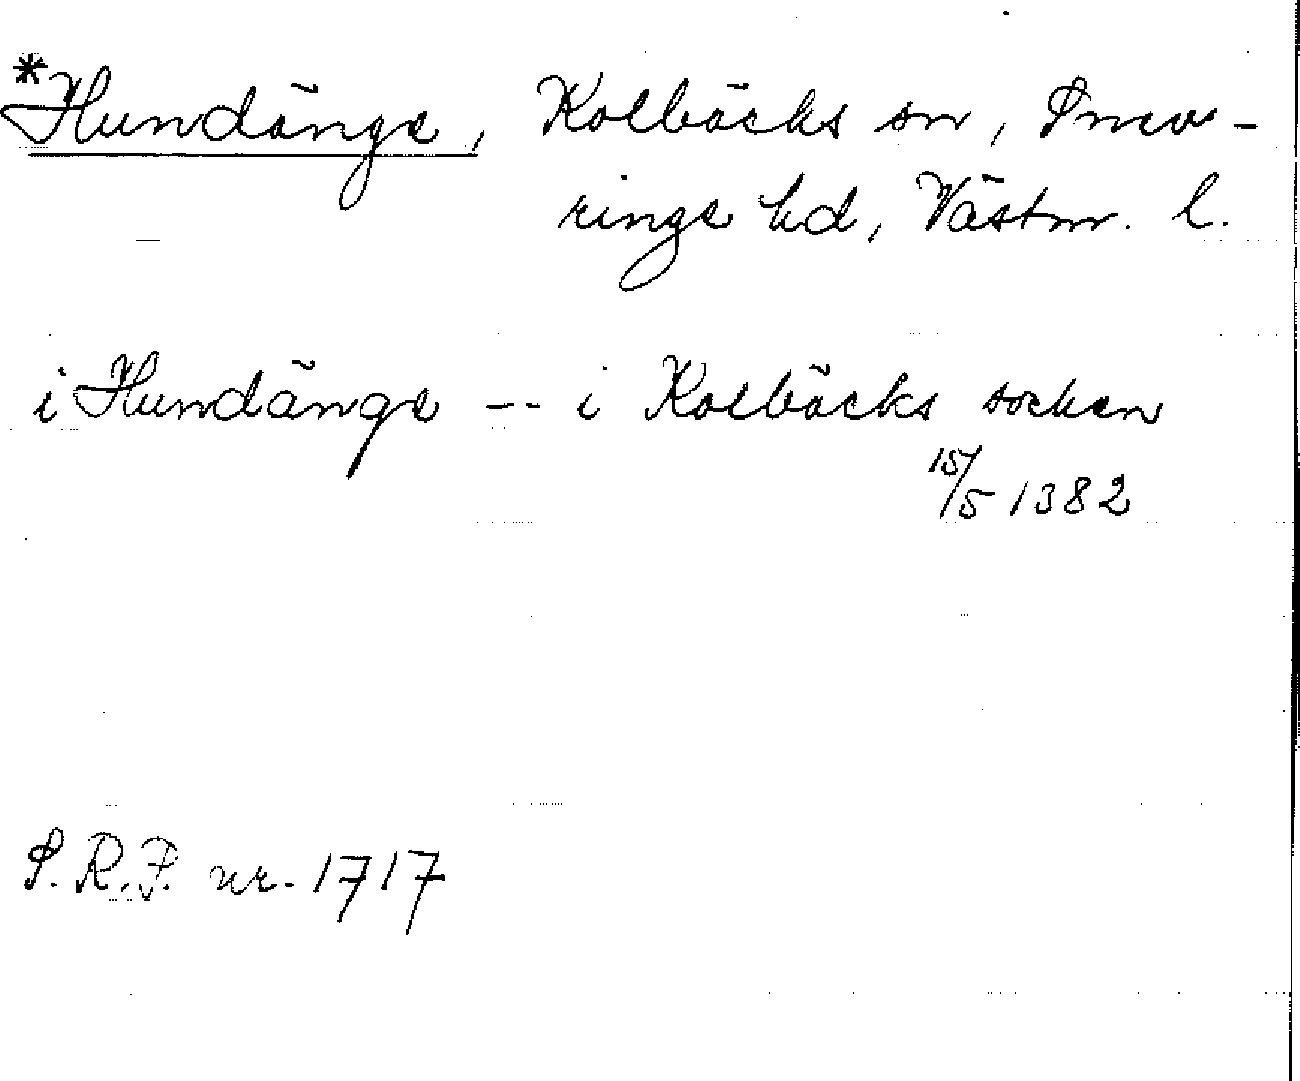 *Hundänge, Kolbäcks sn, Snev-
ringe hd, Västm. l.
i Hundänge -- i Kolbäcks socken
15/5 1382
S.R.P. nr. 1717